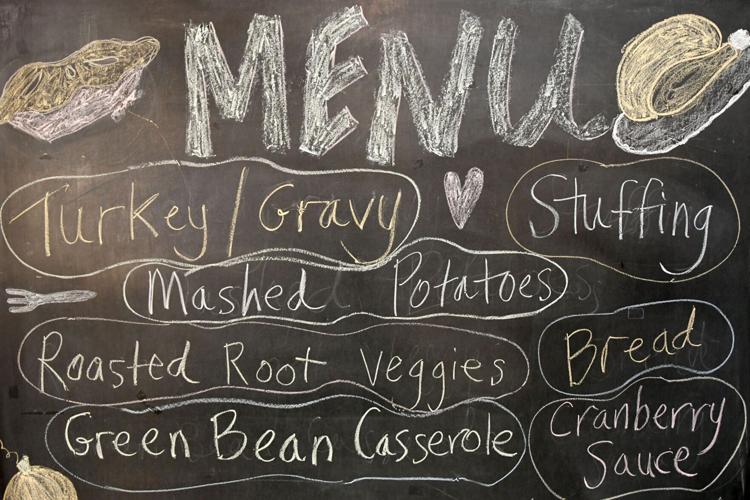 MENU
Turkey/Gravy
Stuffing
Mashed Potatoes
Roasted Root Veggies
Bread
Green Bean Casserole
Cranberry
Sauce